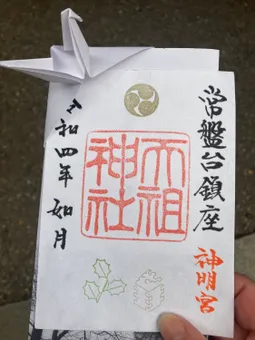 常盤台鎮座
神明宮
天祖
神社
令和四年 如月